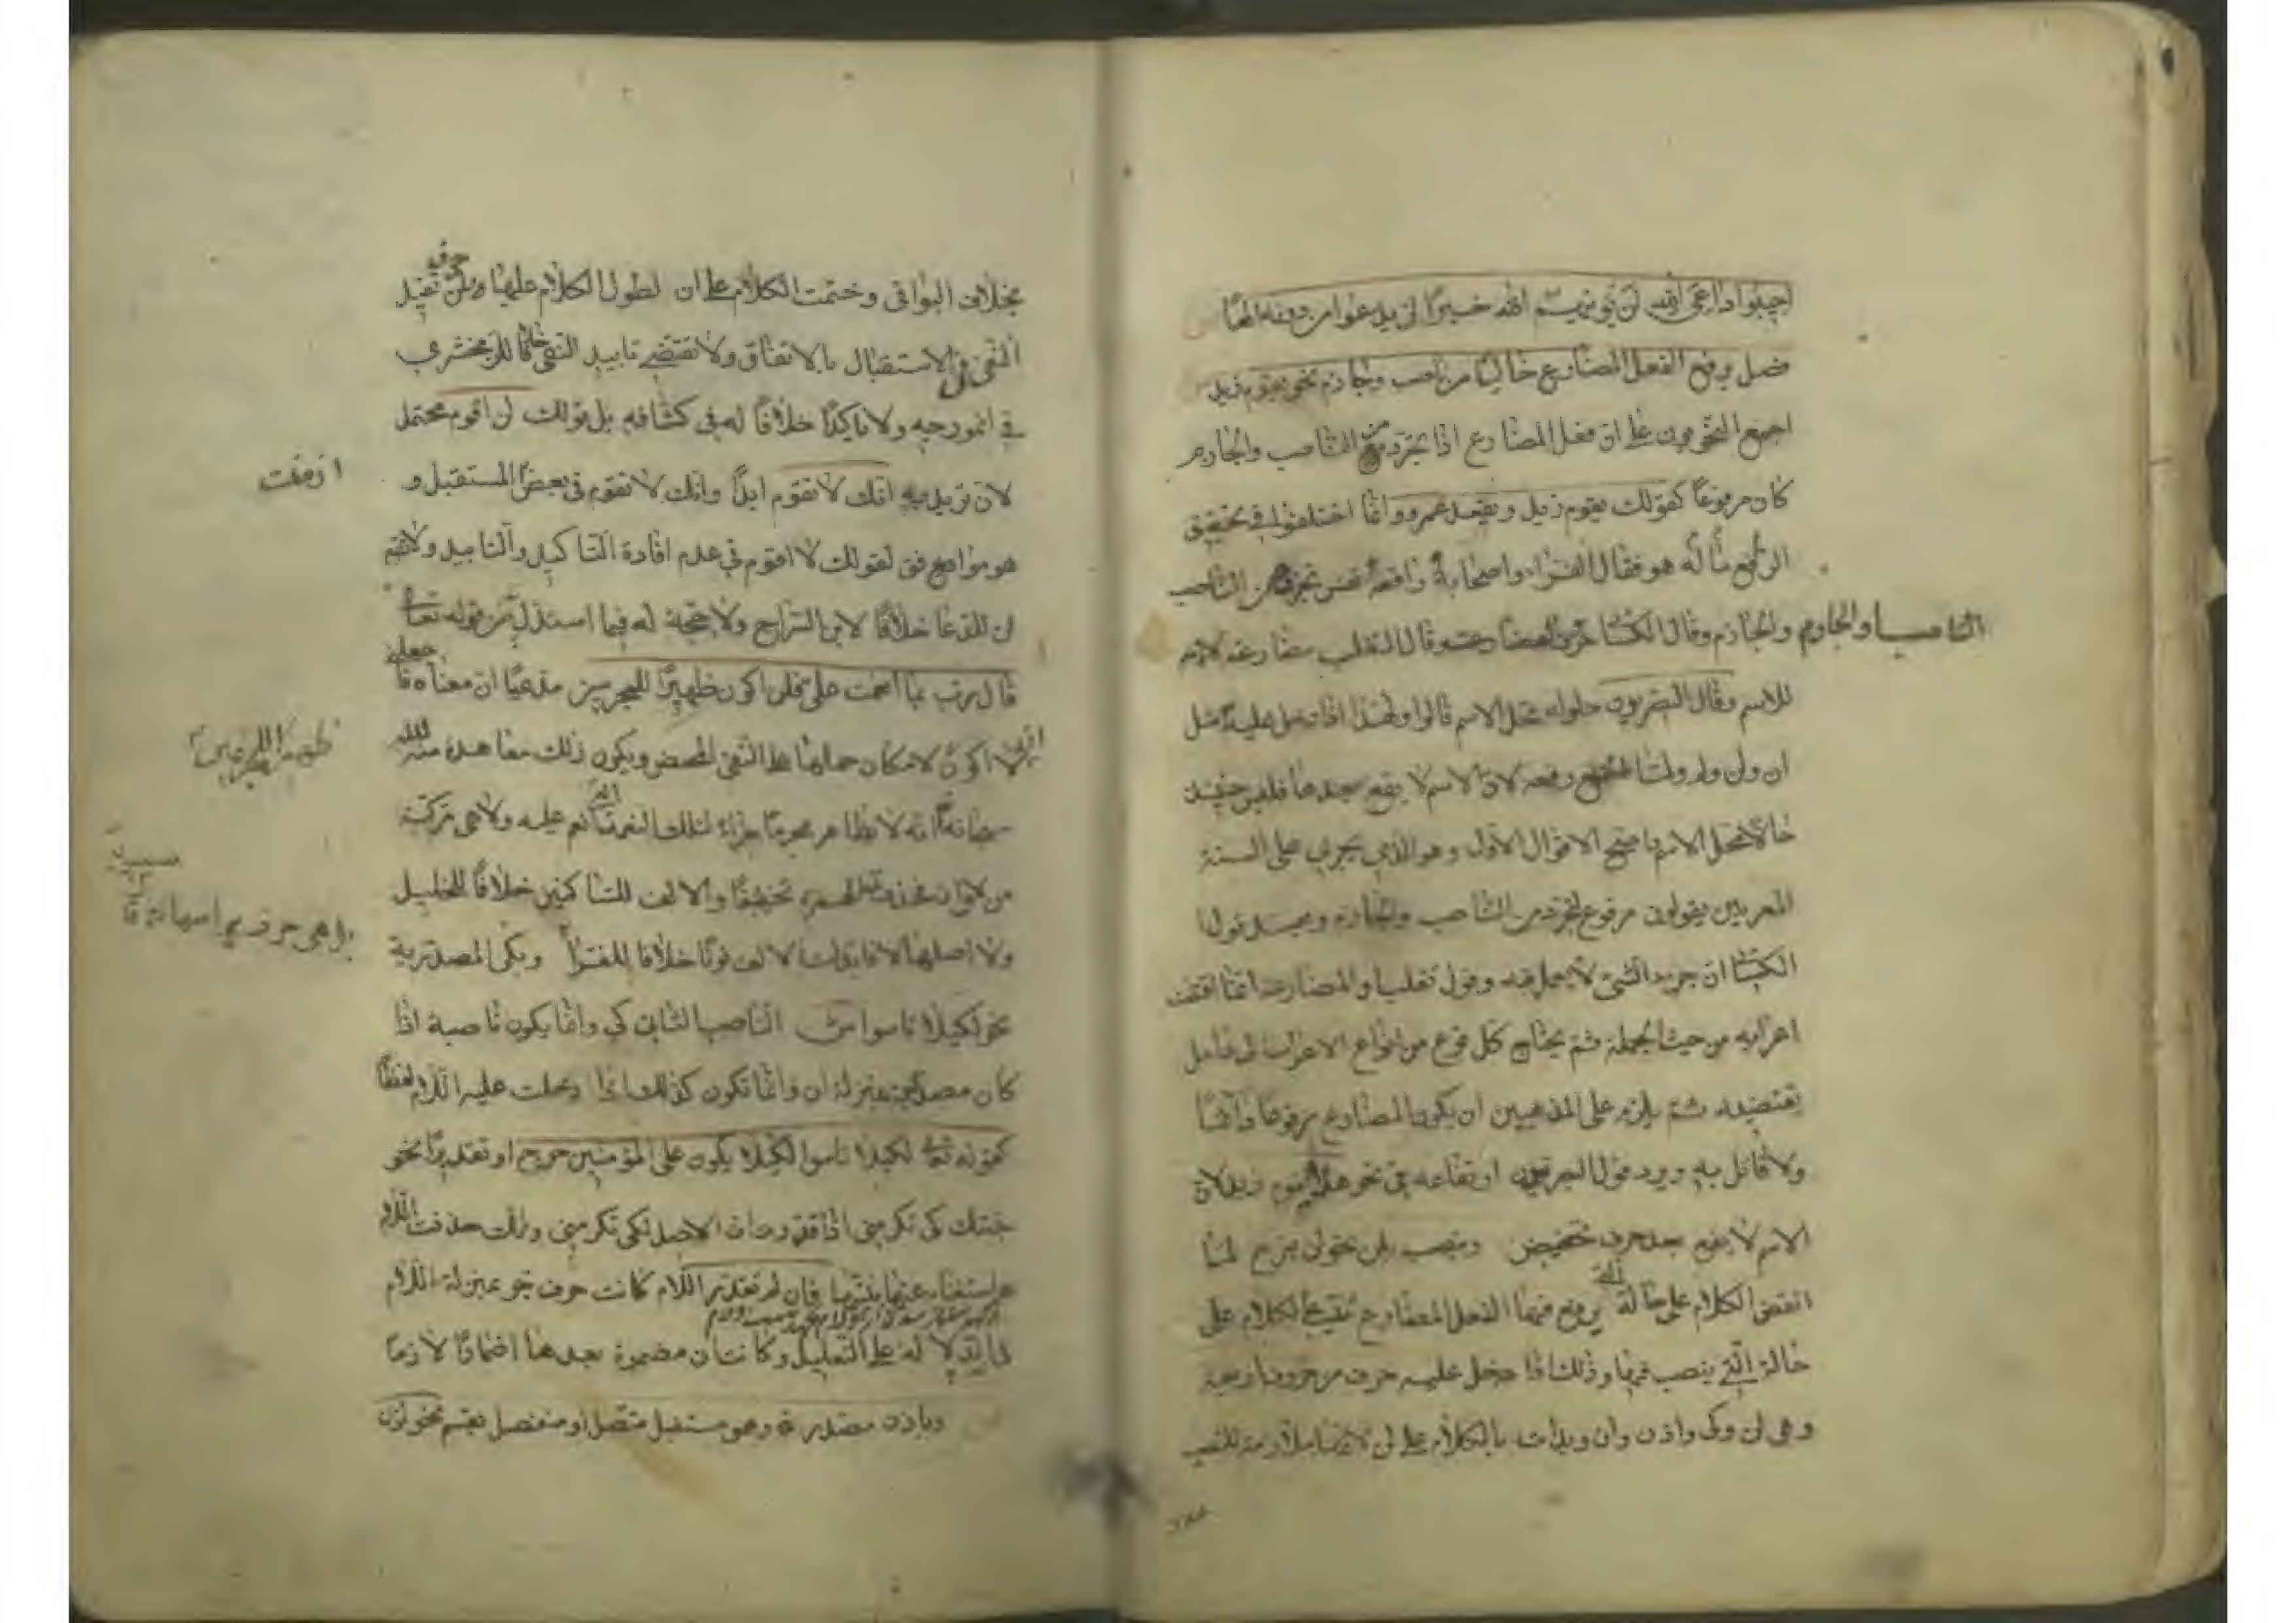 اجيبوا داعي الله لن يؤتيهم الله خيرا لن ندعوا من دونه الها
فصل يرفع الفعل المضارع خاليا من ناصب وجازم نحو يقوم زيد
اجمع النحويون على ان فعل المضارع اذا تجرد من الناصب والجازم
كان مرفوعا كقولك يقوم زيد ويقعد عمرو وانما اختلفوا في تحقيق
الرافع ما له هو فقال الفراء واصحابه رافعه نفس تجرده من الناصب
الناصب والجازم والجازم وقال الكسائي حروف المضارعة وقال الثعلب مضارعته للاسم
للاسم وقال البصريون حلوله محل الاسم قالوا ولهذا اذا دخل عليه مثل
ان ولن ولم ولما امتنع رفعه لان الاسم لا يقع بعدها فليس حينئذ
حالا محل الاسم واصح الاقوال الاول وهو الذي يجري على السنة
المعربين يقولون مرفوع لتجرده من الناصب والجازم ويفسد قول
الكسائي ان جزء الشئ لا يعمل فيه وقول ثعلب والمضارعة انما اقتضت
اعرابه من حيث الجملة ثم يحتاج كل نوع من انواع الاعراب الى عامل
يقتضيه ثم يلزم على المذهبين ان يكون المضارع مرفوعا دائما
ولا قائل به ويرد قول البصريين ارتفاعه في نحو هلا يقوم زيد لان
الاسم لا يقع بعد حرف تحضيض وينصب بلن نحو لن نبرح لما
انقضى الكلام على حالة التي يرفع فيها الفعل المضارع تقيع الكلام على
حالة التي ينصب فيها وذلك اذا دخل عليه حرف من حروف اربعة
وهي لن وكي واذن وان وبدات بالكلام على لن لانها ملازمة للنصب
بخلاف البواقي وختمت الكلام على ان لطول الكلام عليها ولن حرف تفيد
النفي في الاستقبال بالاتفاق ولا تقتضي تابيد النفي خلافا للزمخشري
في انموذجه ولا تاكيدا خلافا له في كشافه بل قولك لن اقوم محتمل
لان تريد به انك لا تقوم ابدا وانك لا تقوم في بعض المستقبل و
هو موافق لقولك لا اقوم في عدم افادة التاكيد والتابيد ولا تقع
لن للدعا خلافا لابن السراج ولا حجة له فيما استدل به من قوله تعالى
قال رب بما انعمت علي فلن اكون ظهيرا للمجرمين مدعيا ان معناه فا جعلني
لا اكون لامكان حملها على النفي المحض ويكون ذلك معاهدة منه لله
سبحانه انه لا يظاهر مجرما جزاء لتلك النعمة التي انعم عليه ولا هي مركبة
من لا وان فحذفت الهمزة تخفيفا والالف للساكنين خلافا للخليل
بل هي حرف براسها
ولا اصلها لا فابدلت الالف نونا خلافا للفراء وبكي المصدرية
نحو لكيلا تاسوا ش الناصب الثاني كي وانما يكون ناصبة اذا
كان مصدرية بمنزلة ان وانما تكون كذلك اذا دخلت عليه اللام لفظا
كقوله تعالى لكيلا تاسوا لكيلا يكون على المؤمنين حرج او تقديرا نحو
جئتك كي تكرمني اذا قدرت ان الاصل لكي تكرمني وانك حذفت اللام
استغناء عنها بنيتها فان لم تقدر اللام كانت حرف جر بمنزلة اللام
في الدلالة على التعليل وكانت ان مضمرة بعدها اضمارا لازما
وباذن مصدرة وهو مستقبل متصل او منفصل بقسم نحو اذن